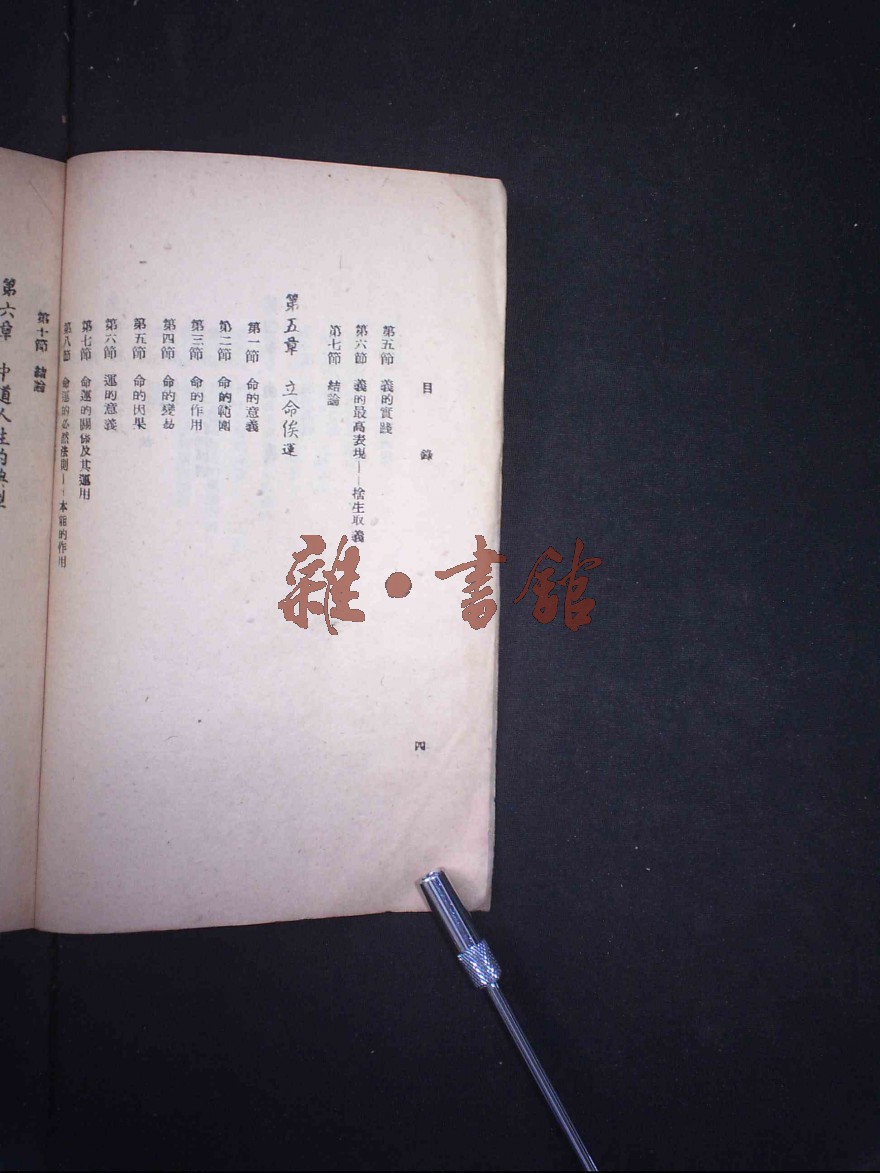 目錄
第五節 義的實踐
第六節 義的最高表現——捨生取義
第七節 結論
第五章 立命俟運
第一節 命的意義
第二節 命的範圍
第三節 命的作用
第四節 命的變易
第五節 命的因果
第六節 運的意義
第七節 命運的關係及其運用
第八節 命運的必然法則——本能的作用
四
第十節 結論
第六章 中道人生的典型
雜·書館